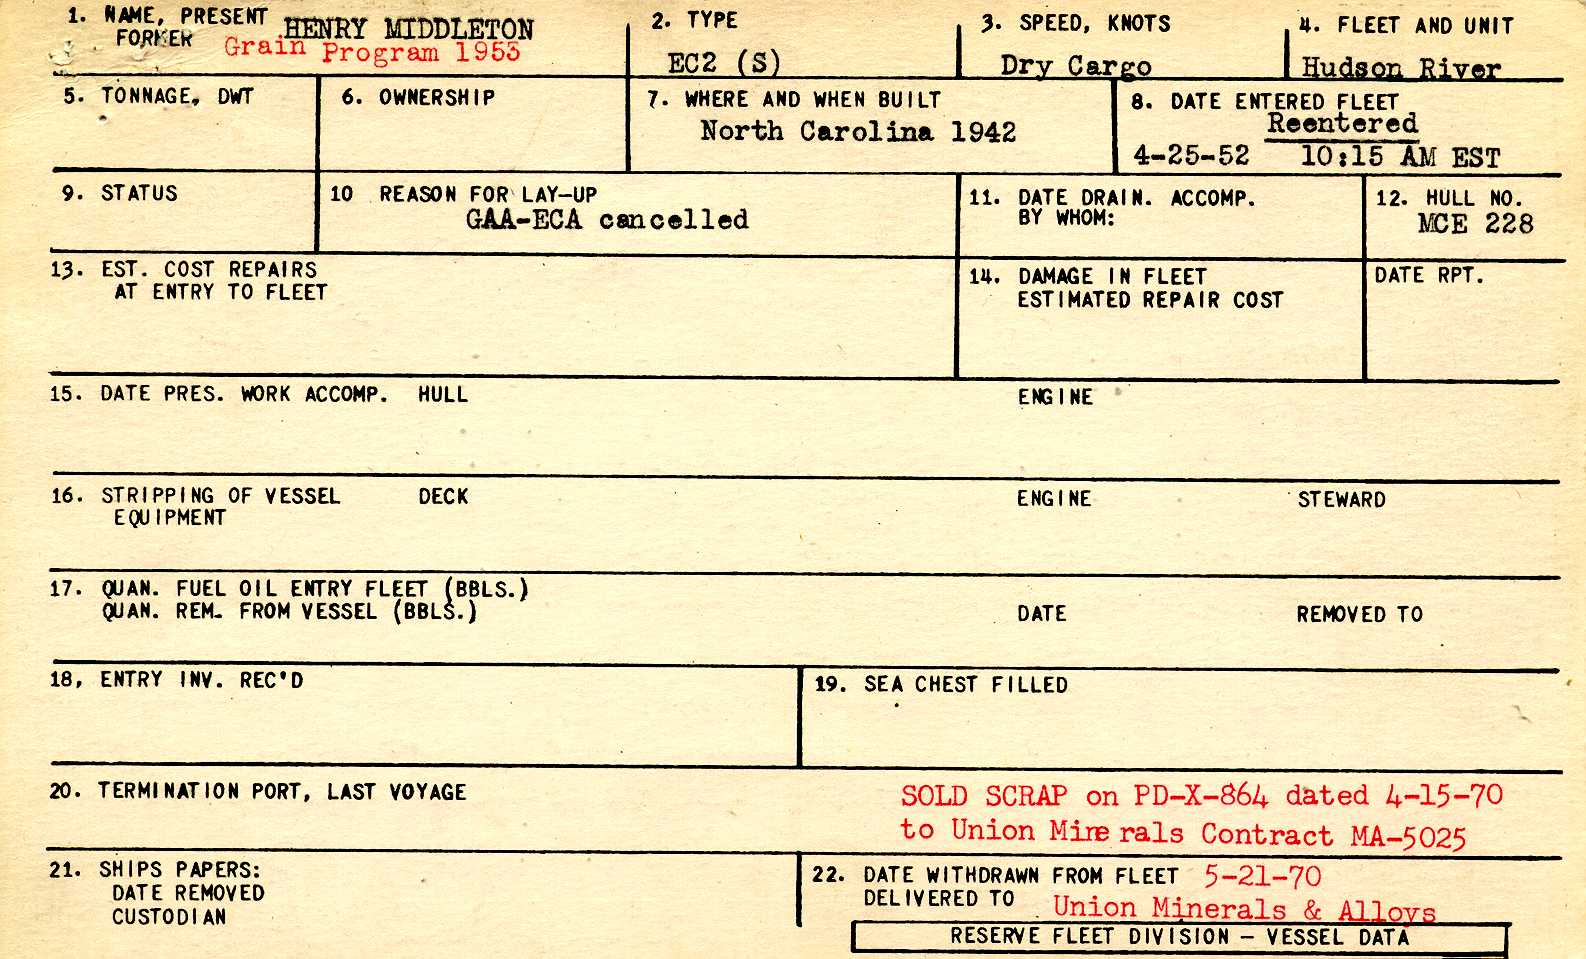 1. NAME, PRESENT HENRY MIDDLETON
FORMER Grain Program 1953
2. TYPE
EC2 (S)
3. SPEED, KNOTS
Dry Cargo
4. FLEET AND UNIT
Hudson River
5. TONNAGE, DWT
6. OWNERSHIP
7. WHERE AND WHEN BUILT
North Carolina 1942
8. DATE ENTERED FLEET
Reentered
4-25-52 10:15 AM EST
9. STATUS
10 REASON FOR LAY-UP
GAA-ECA cancelled
11. DATE DRAIN. ACCOMP.
BY WHOM:
12. HULL NO.
MCE 228
13. EST. COST REPAIRS
AT ENTRY TO FLEET
14. DAMAGE IN FLEET
ESTIMATED REPAIR COST
DATE RPT.
15. DATE PRES. WORK ACCOMP. HULL ENGINE
16. STRIPPING OF VESSEL DECK ENGINE STEWARD
EQUIPMENT
17. QUAN. FUEL OIL ENTRY FLEET (BBLS.)
QUAN. REM. FROM VESSEL (BBLS.) DATE REMOVED TO
18, ENTRY INV. REC'D
19. SEA CHEST FILLED
20. TERMINATION PORT, LAST VOYAGE
SOLD SCRAP on PD-X-864 dated 4-15-70
to Union Minerals Contract MA-5025
21. SHIPS PAPERS:
DATE REMOVED
CUSTODIAN
22. DATE WITHDRAWN FROM FLEET 5-21-70
DELIVERED TO Union Minerals & Alloys
RESERVE FLEET DIVISION - VESSEL DATA